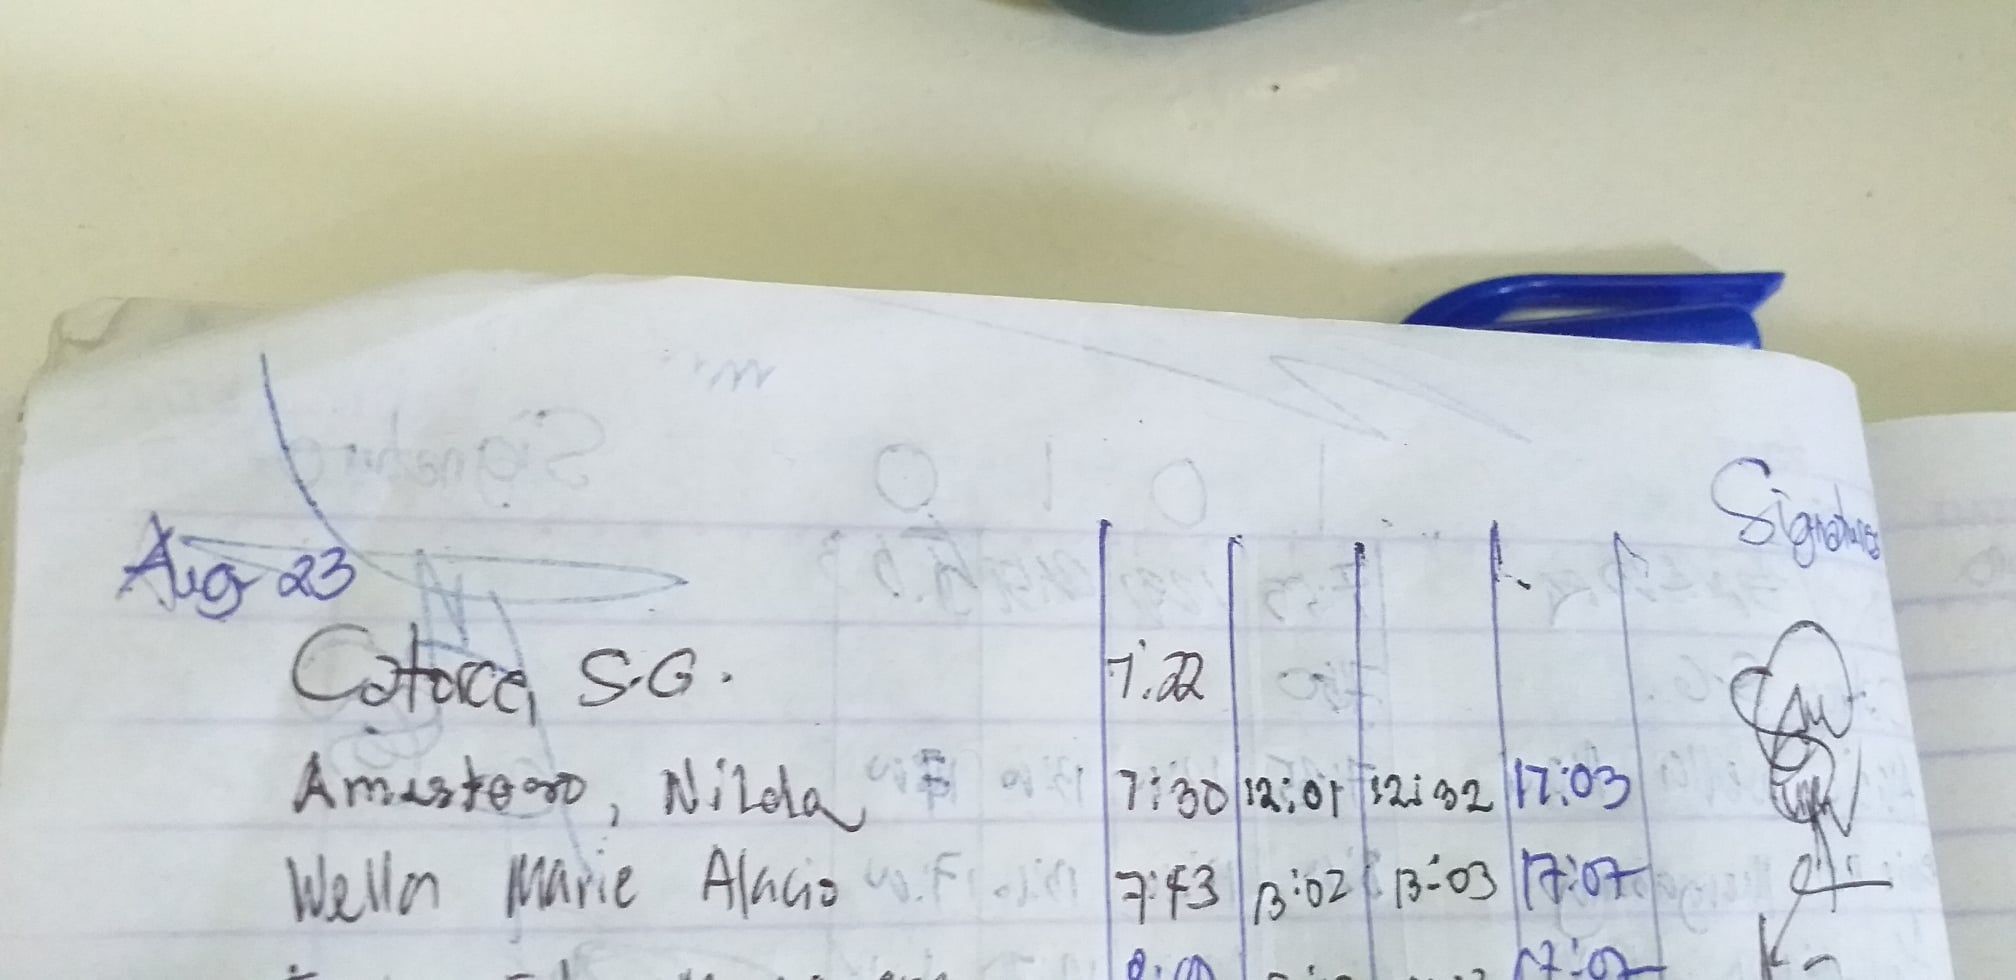 Signature
Aug 23
Catorce, S.G. 7:22
Amistoso, Nilda 7:30 12:01 12:32 17:03
Wella Marie Alacio 7:43 13:02 13:03 17:07
17:07